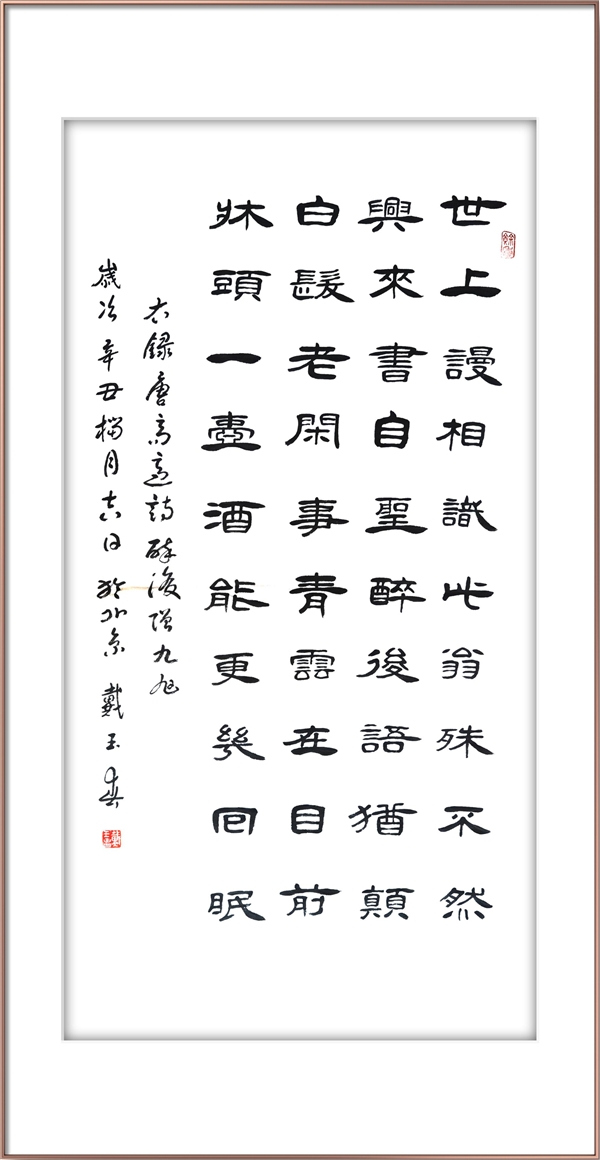 世上謾相識此翁殊不然
興來書自聖醉後語猶顛
白髮老閑事青雲在目前
牀頭一壺酒能更幾回眠
右録唐高適詩醉後贈九旭
歲次辛丑榴月吉日於北京 戴玉春